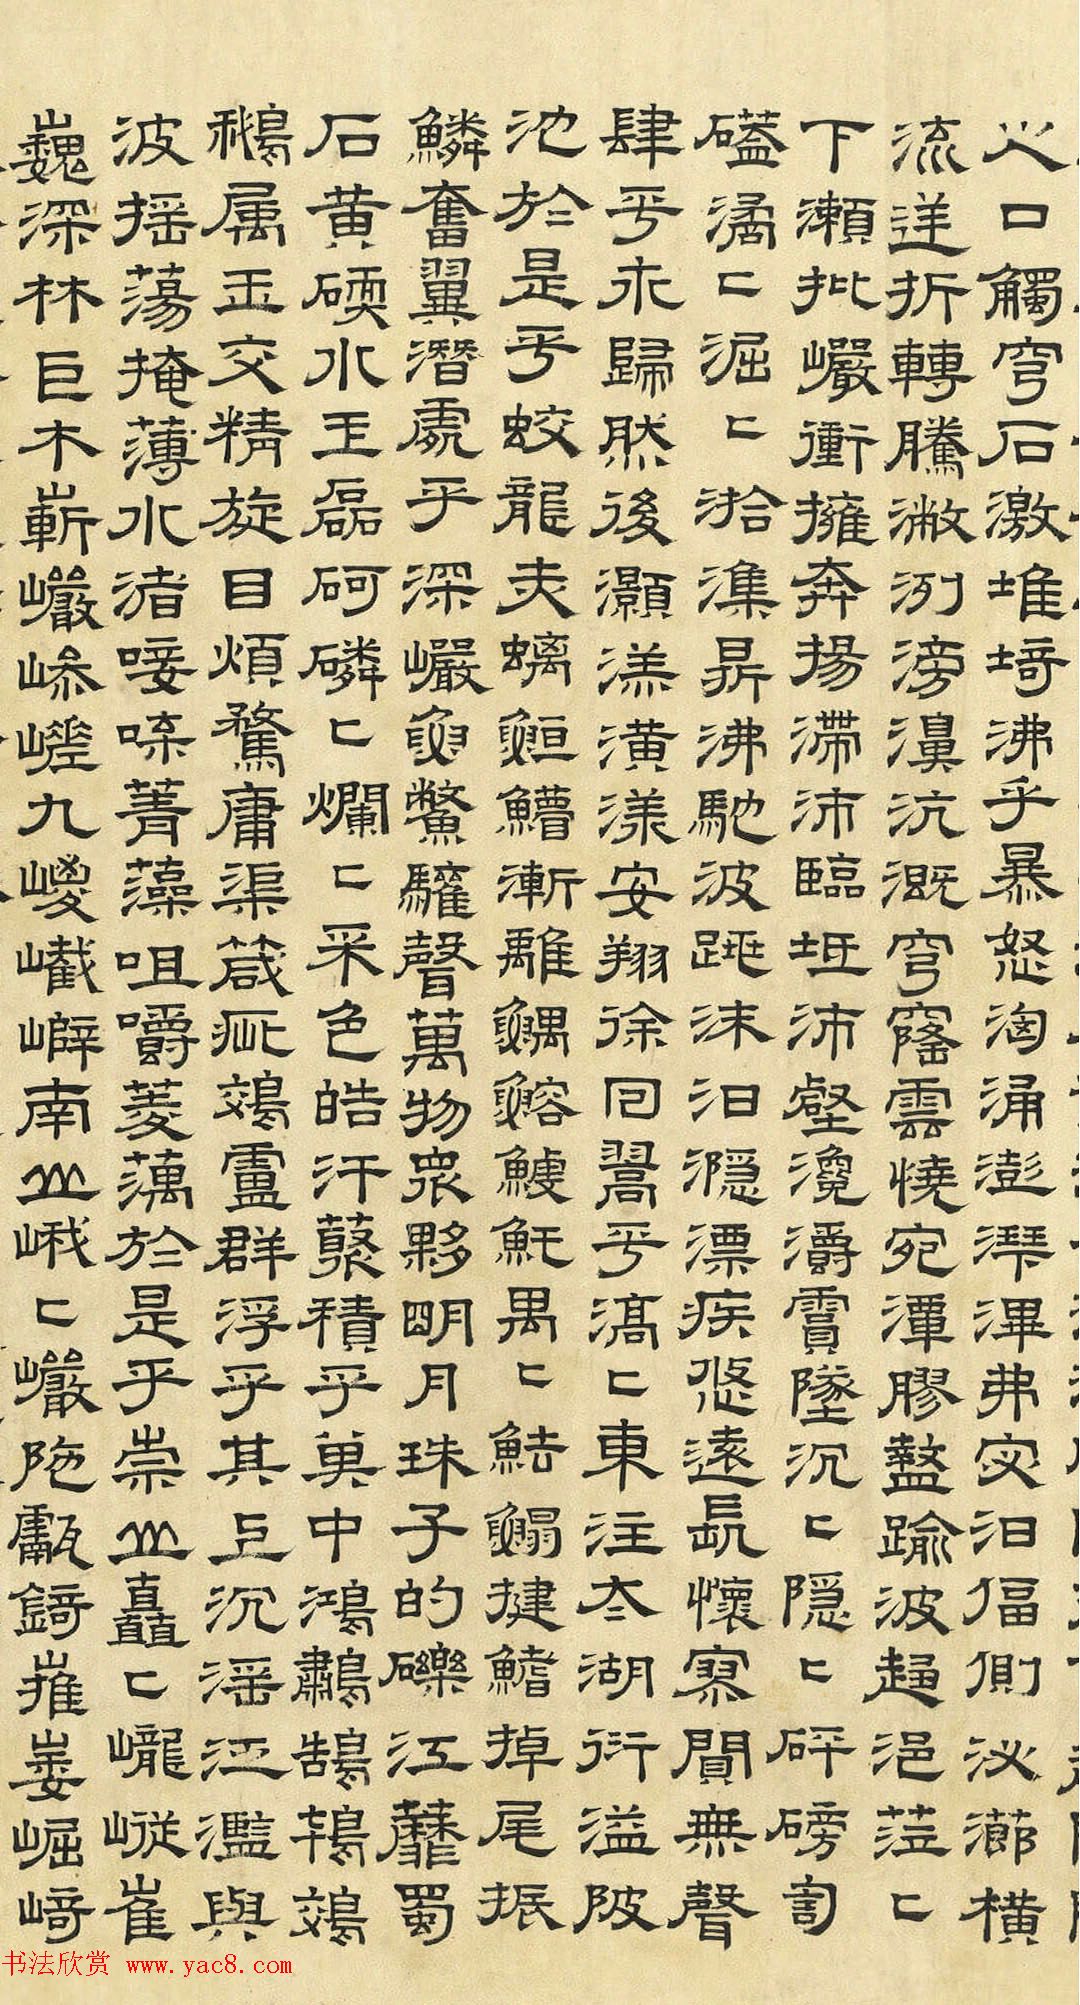 之口觸穹石激堆埼沸乎暴怒洶涌澎湃滭弗宓汩偪側泌瀄橫
流逆折轉騰潎洌滂濞沆溉穹窿雲橈宛潬膠盭踰波趨浥蒞〻
下瀨批巖衝擁奔揚滯沛臨坻沛壑瀺灂霣墜沉〻隱〻砰磅訇
礚潏〻淈〻湁潗鼎沸馳波跳沫汩㴔漂疾悠遠長懷無聲
肆乎永歸然後灝溔潢漾安翔徐回翯乎滈〻東注太湖衍溢陂
池於是乎蛟龍赤螭䱭䲛漸離鰅鰫鰬魠禺〻魼鰨揵鰭掉尾振
鱗奮翼潛處乎深巖魚鱉驩聲萬物眾夥明月珠子的礫江靡蜀
石黃碝水玉磊砢磷〻爛〻采色皓汗藂積乎其中鴻鷫鵠鴇鴐
鵝屬玉交精旋目煩鶩庸渠箴疵鵁盧群浮乎其上沉淫泛濫與
波搖蕩掩薄水渚唼喋菁藻咀嚼菱藕於是乎崇山矗〻巃嵷崔
巍深林巨木嶄巖嵾嵳九嵕嶻嶭南山峨〻巖陁甗錡嶊崣崛崎
书法欣赏 www.yac8.com